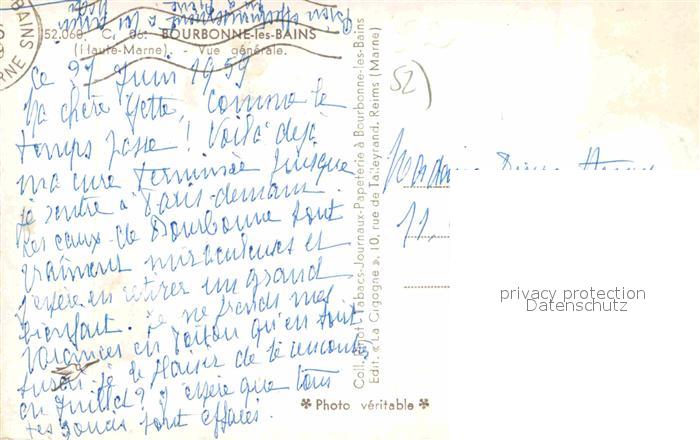 52.060. C. 06. BOURBONNE-les-BAINS
(Haute-Marne). - Vue générale.
ce 27 Juin 1959
Ma chère Yette, comme le
temps passe ! Voilà déjà
ma cure terminée puisque
je rentre à Paris demain.
Les eaux de Bourbonne sont
vraiment miraculeuses et
j'espère en retirer un grand
bienfait. Je ne prends mes
vacances en
aurai-je le plaisir de te rencontrer
en Juillet ? J'espère que tous
tes soucis sont effacés.
52)
Madame
11,
Coll. Tabacs-Journaux-Papeterie à Bourbonne-les-Bains
Edit. « La Cigogne », 10, rue de Talleyrand, Reims (Marne)
privacy protection
Datenschutz
✽ Photo véritable ✽